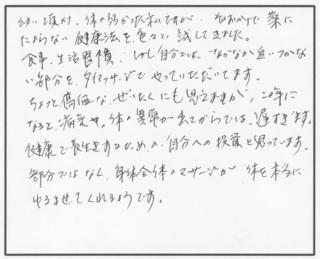 幼い頃から、体の弱かった私ですが、おかげで薬に
たよらない健康法を色々と試してきました。
食事、生活習慣、しかし自分ではなかなか追いつかな
い部分を、タイマッサージでやっていただいてます。
ちょっと高価な、ぜいたくにも思えますが、この年に
なると、痛みや、体の異常が出てからでは、遅すぎます。
健康で長生きするための、自分への投資と思っています。
部分ではなく、身体全体のマッサージが体を本当に
ゆるませてくれるようです。